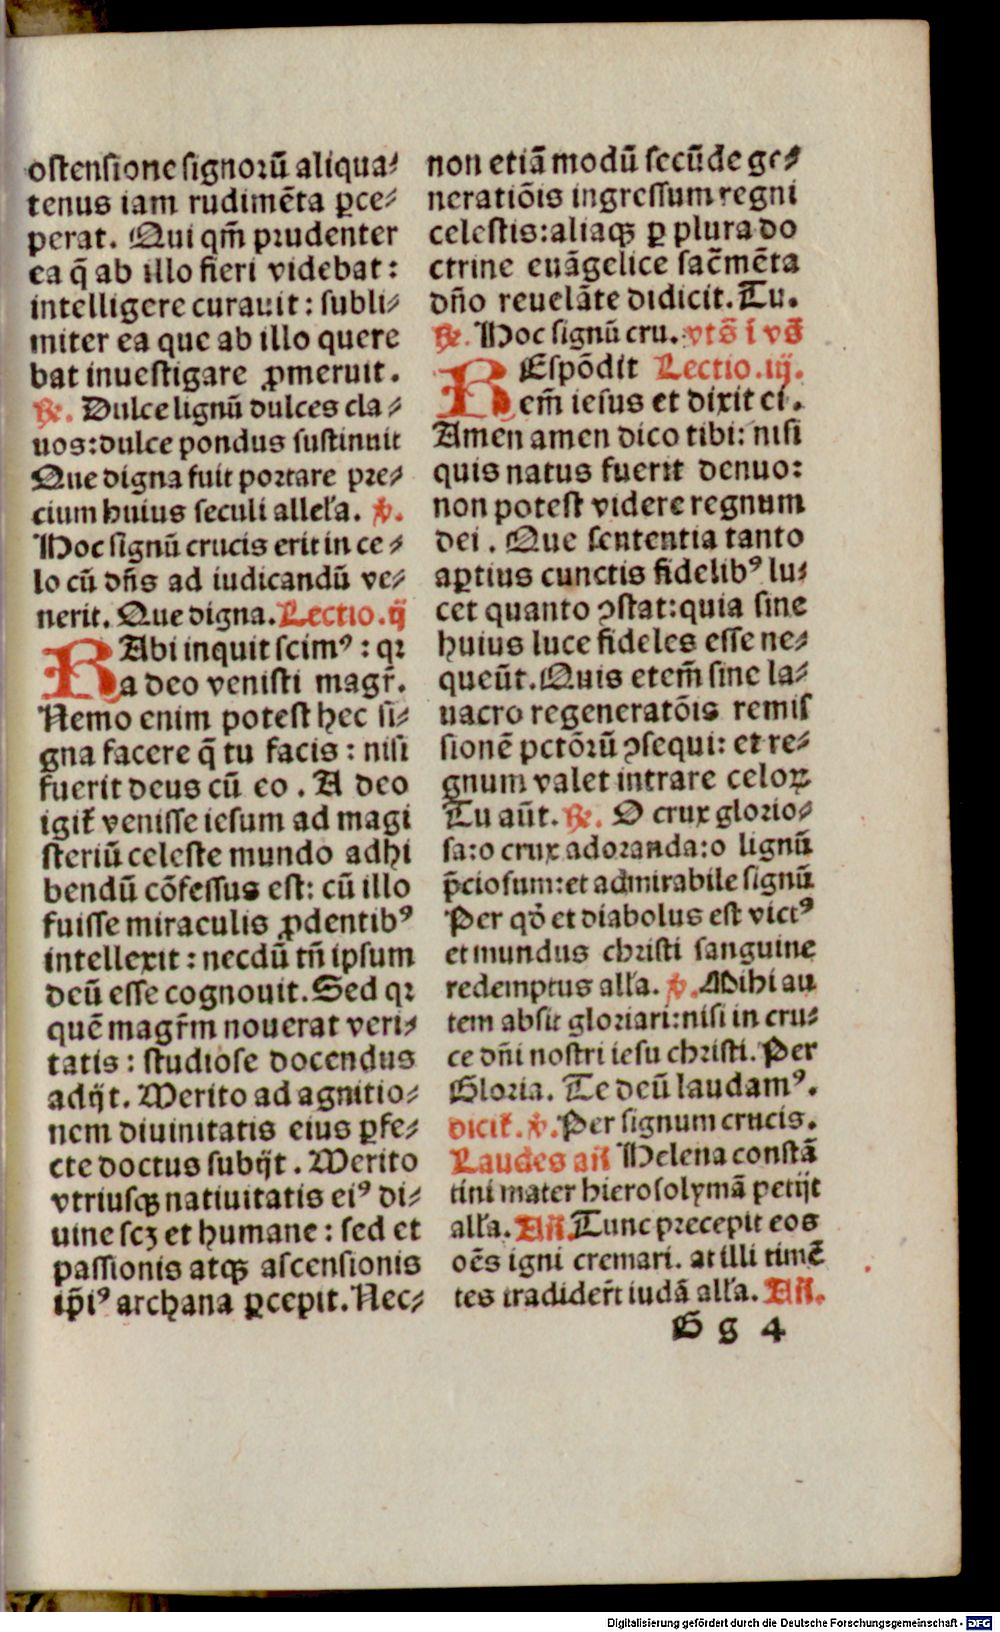 ostensione signorū aliqua⸗
tenus iam rudimēta ꝑce⸗
perat. Qui qm̄ prudenter
ea q̄ ab illo fieri videbat:
intelligere curauit: subli⸗
miter ea que ab illo quere
bat inuestigare ꝓmeruit.
℟. Dulce lignū dulces cla⸗
uos: dulce pondus sustinuit
Que digna fuit portare pre⸗
cium huius seculi allel'a. ℣.
Hoc signū crucis erit in ce⸗
lo cū dn̄s ad iudicandū ve⸗
nerit. Que digna. Lectio.ij
RAbi inquit scimꝰ: qꝛ
a deo venisti magr̄.
Nemo enim potest hec si⸗
gna facere q̄ tu facis: nisi
fuerit deus cū eo. A deo
igit᷑ venisse iesum ad magi
steriū celeste mundo adhi
bendū cōfessus est: cū illo
fuisse miraculis ꝓdentibꝰ
intellexit: necdū tn̄ ipsum
deū esse cognouit. Sed qꝛ
quē magr̄m nouerat veri⸗
tatis: studiose docendus
adijt. Merito ad agnitio⸗
nem diuinitatis eius ꝑfe⸗
cte doctus subijt. Merito
vtriusqꝫ natiuitatis eiꝰ di⸗
uine scꝫ et humane: sed et
passionis atqꝫ ascensionis
ip̄iꝰ archana ꝑcepit. Nec⸗
non etiā modū secūde ge⸗
neratiōis ingressum regni
celestis: aliaqꝫ ꝑ plura do
ctrine euāgelice sac̄mēta
dn̄o reuelāte didicit. Tu.
℟. Hoc signū cru. vts̄ ī vs̄
REspōdit Lectio.iij.
em̄ iesus et dixit ei.
Amen amen dico tibi: nisi
quis natus fuerit denuo:
non potest videre regnum
dei. Que sententia tanto
aꝑtius cunctis fidelibꝰ lu⸗
cet quanto ꝯstat: quia sine
huius luce fideles esse ne⸗
queūt. Quis etem̄ sine la⸗
uacro regeneratōis remis
sionē pctōrū ꝯsequi: et re⸗
gnum valet intrare celoꝝ
Tu aūt. ℟. O crux glorio⸗
sa: o crux adoranda: o lignū
p̄ciosum: et admirabile signū
Per qd̓ et diabolus est victꝰ
et mundus christi sanguine
redemptus all'a. ℣. Mihi au
tem absit gloriari: nisi in cru⸗
ce dn̄i nostri iesu christi. Per
Gloria. Te deū laudamꝰ.
dicit᷑. ℣. Per signum crucis.
Laudes an̄ Helena constā
tini mater hierosolymā petijt
all'a. An̄. Tunc precepit eos
oēs igni cremari. at illi timē
tes tradider̄t iudā all'a. An̄.
G g 4
Digitalisierung gefördert durch die Deutsche Forschungsgemeinschaft - DFG